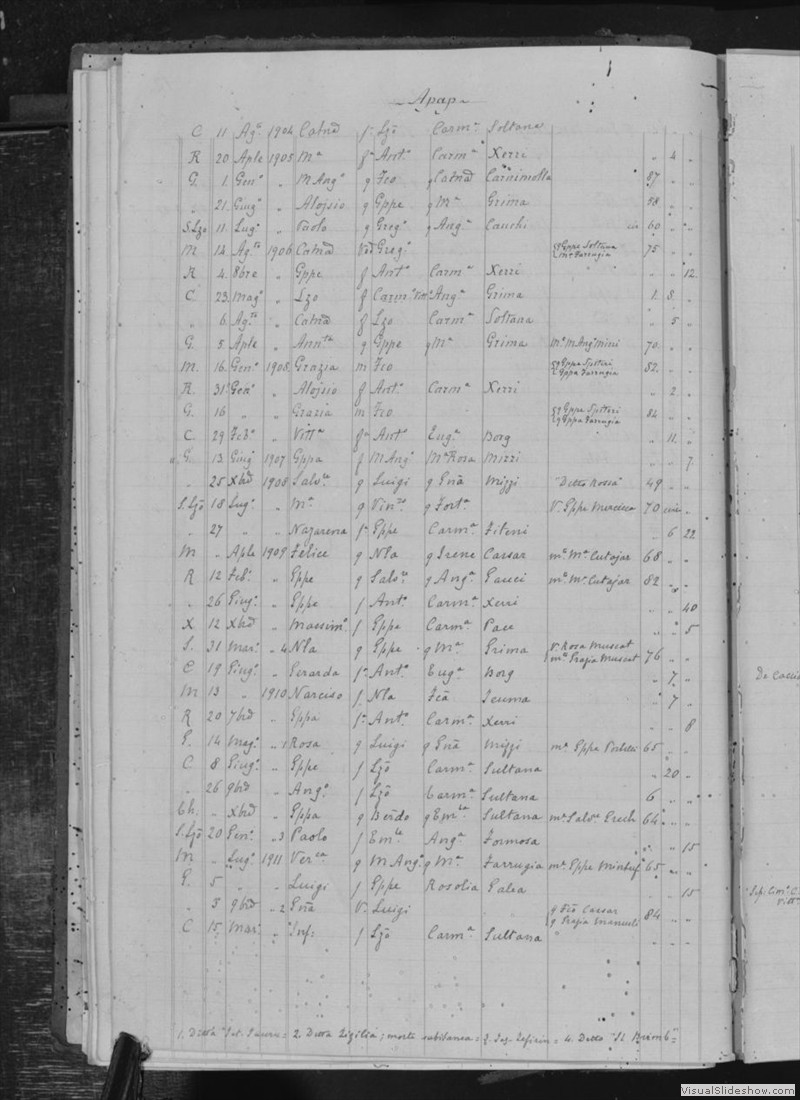 Apap
C 11 Ag.º 1904 Catnª f. Lzō Carmª Soltana
R 20 Aple 1905 Mª fª Antº Carmª Xerri " 4 "
G. 1 Genº " M Angº q Fco q Catnª 87 " "
" 21 Giugº " Aloisio q Gppe q Mª Grima 58 " "
S. Lzo 11 Lugº " Paolo q Gregº q Angª Cauchi 60 " "
M 12 Ag.to 1906 Catnª Vod Gregº q Gppe Soltana 75 " "
q Mª Farrugia
R 4 8bre " Gppe f Antº Carmª Xerri " " 12
C 23 Magº " Lzo f Carmº Angª Grima 1. 8. "
" 6 Ag.to " Catnª f Lzo Carmª Soltana " 5 "
G. 5 Aple " Annta q Gppe q Mª Grima 70 " "
M. 16 Genº 1908 Grazia m Fco q Gppe Spiteri 82 " "
q Gppa Farrugia
R. 31 Genº " Aloisio f Antº Carmª Xerri " 2 "
G. 16 " " Grazia m Fco q Gppe Spiteri 82 " "
q Gppa Farrugia
C 29 Febº " Vittª fª Antº Eugª Borg " 11 "
G. 13 Giugº 1907 Gppa f M Angº Mª Rosa Mizzi " " 7
" 25 Xbre 1908 Salvre q Luigi q Gnā Mizzi "Detto Rossa" 49 " "
S. Lzō 18 Lugº " Mª q Vinzo q Fortª Vª Gppe Mercieca 70
" 27 " " Nazarena fª Gppe Carmª Fiteni " 6 22
M " Aple 1909 Felice q Nla q Irene Caesar mº Mª Cutajar 68 " "
R 12 Febº " Gppe q Salvre q Angª Gauci mº Mª Cutajar 82 " "
" 26 Giugº " Gppe f Antº Carmª Xerri " " 40
X 12 Xbre " Massimº f Gppe Carmª Pace " " 5
S. 31 Marº " 4 Nla q Gppe q Mª Grima Vº Rosa Muscat 76 " "
mº Grazia Muscat
C 19 Giugº " Gerarda fª Antº Eugª Borg " 7 "
M 13 " 1910 Narciso f. Nla Fcā Scuma " 7 "
R 20 7bre " Gppa fª Antº Carmª Xerri " " 8
G. 14 Magº " 1 Rosa q Luigi q Gnā Mizzi mª Gppe Portelli 65 " "
C 8 Giugº " Gppe f Lzō Carmª Sultana " 20 "
" 26 9bre " Angº f Lzō Carmª Sultana 6 " "
Gh. " Xbre " Gppa q Berdo q Emla Sultana mª Salvre Grech 64 " "
S. Lzō 20 Genº " 3 Paolo f Emle Angª Formosa " " 15
M " Lugº 1911 Verca q M Angº q Mª Farrugia mª Gppe 65 " "
G. 5 " " Luigi f Gppe Rosolia Galea " " 15
" 3 9bre " 2 Gnā Vª Luigi q Fcō Caesar 84 " "
q Grazia Emanueli
C 15 Marº " Inf: f Lzō Carmª Sultana
1. Detta = 2. Detta Zizilia; morte subitanea = 4. Detto "Il
VisualSlideshow.com